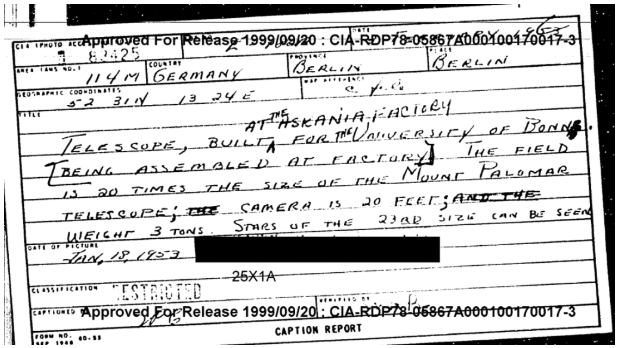 CIA (PHOTO ACC Approved For Release 1999/09/20 : CIA-RDP78-05867A000100170017-3
DATE
82425
AREA (AMS NO.) COUNTRY PROVINCE PLACE
114M GERMANY BERLIN BERLIN
GEOGRAPHIC COORDINATES MAP REFERENCE
52 31N 13 24E
TITLE
AT THE ASKANIA FACTORY
TELESCOPE, BUILT FOR THE UNIVERSITY OF BONN.
[BEING ASSEMBLED AT FACTORY] THE FIELD
IS 20 TIMES THE SIZE OF THE MOUNT PALOMAR
TELESCOPE; THE CAMERA IS 20 FEET; AND THE
WEIGHT 3 TONS. STARS OF THE 23RD SIZE CAN BE SEEN
DATE OF PICTURE
JAN, 18, 1953
25X1A
CLASSIFICATION RESTRICTED
CAPTIONED VERIFIED BY
Approved For Release 1999/09/20 : CIA-RDP78-05867A000100170017-3
FORM NO. 60-53 CAPTION REPORT
SEP 1948